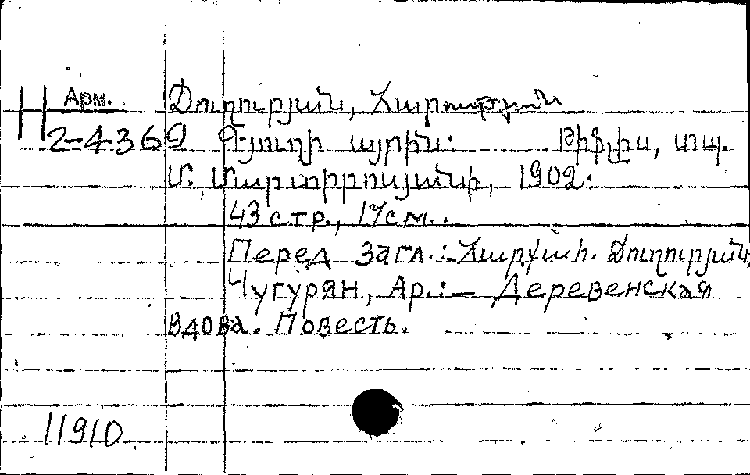 Арм.
Ճուղուրյան, Հարություն
H 2-4369 Գյուղի այրին: Թիֆլիս, տպ.
Մ. Մարտիրոսյանի, 1902.
43 стр., 17см.
Перед загл.: Ճուղուրյան,
Чугурян, Ар.: – Деревенская
вдова. Повесть.
11910